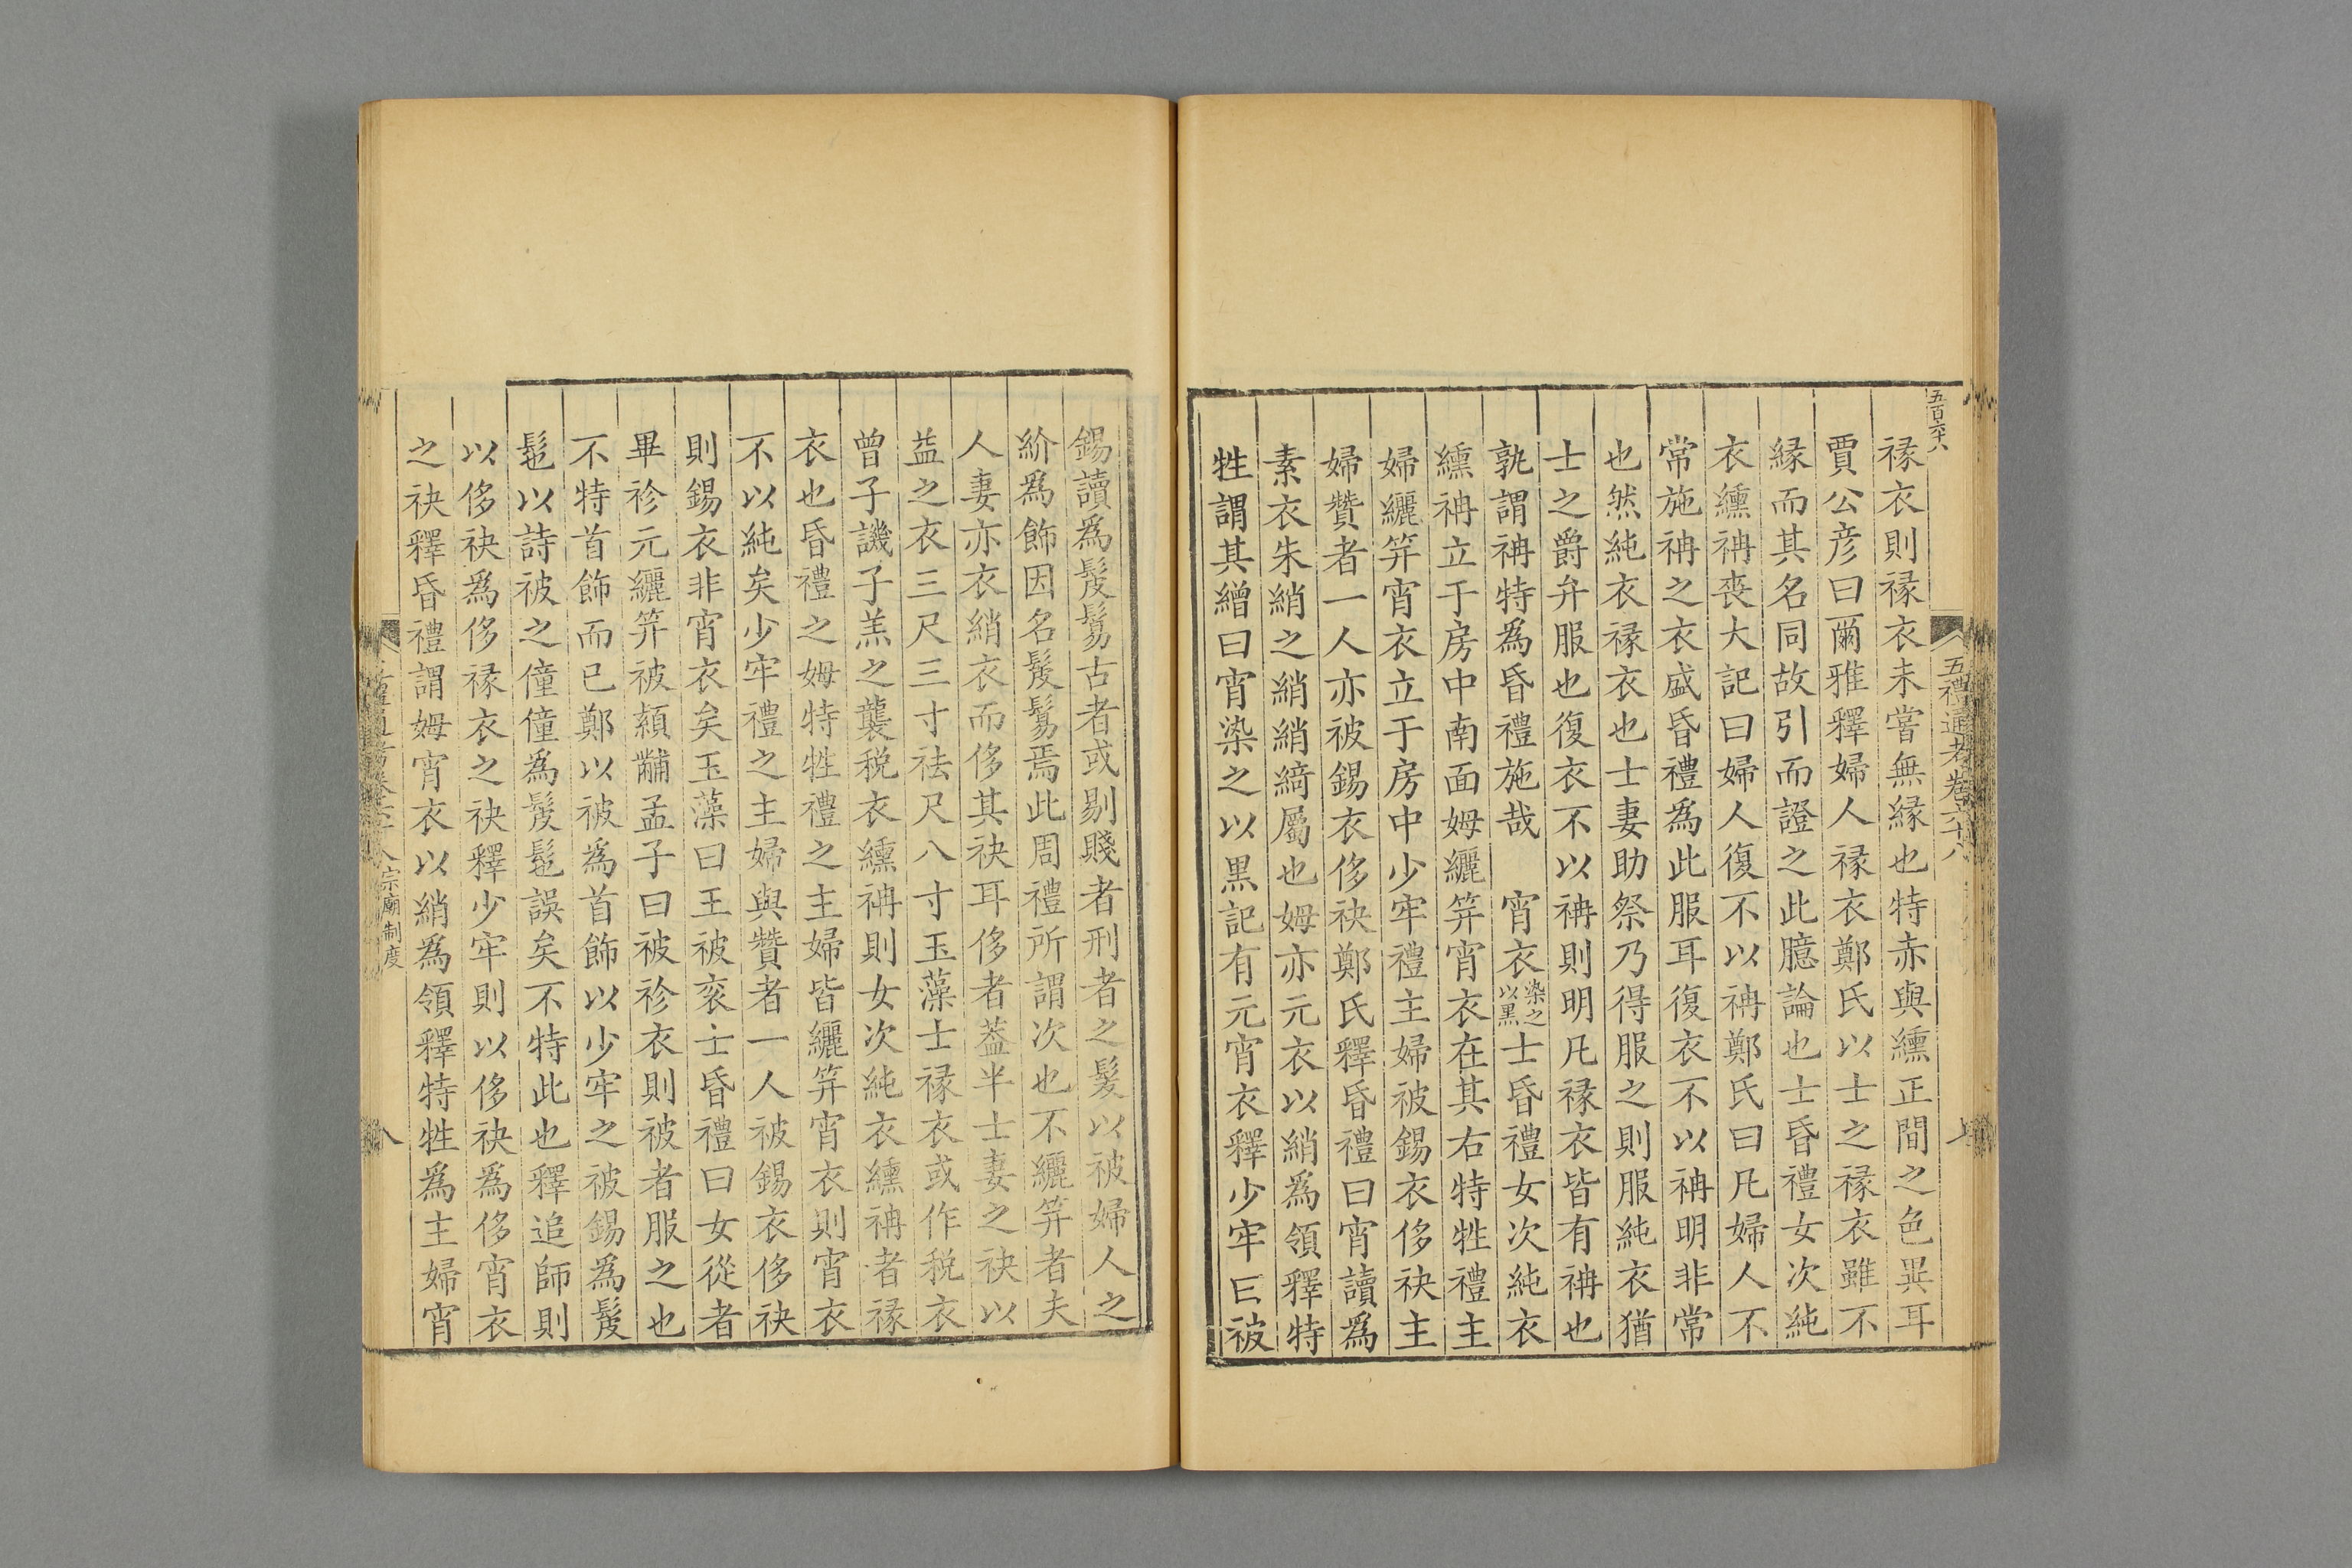 五百六十八
五禮通考卷六十八
褖衣則褖衣未嘗無緣也特赤與纁正間之色異耳
賈公彦曰爾雅釋婦人褖衣鄭氏以士之褖衣雖不
緣而其名同故引而證之此臆論也士昏禮女次純
衣纁袡喪大記曰婦人復不以袡鄭氏曰凡婦人不
常施袡之衣盛昏禮爲此服耳復衣不以袡明非常
也然純衣褖衣也士妻助祭乃得服之則服純衣猶
士之爵弁服也復衣不以袡則明凡褖衣皆有袡也
孰謂袡特爲昏禮施哉　宵衣染之以黑士昏禮女次純衣
纁袡立于房中南面姆纚笄宵衣在其右特牲禮主
婦纚笄宵衣立于房中少牢禮主婦被錫衣侈袂主
婦贊者一人亦被錫衣侈袂鄭氏釋昏禮曰宵讀爲
素衣朱綃之綃綃綺屬也姆亦元衣以綃爲領釋特
牲謂其繒曰宵染之以黑記有元宵衣釋少牢曰被
錫讀爲髲鬄古者或剔賤者刑者之髮以被婦人之
紒爲飾因名髲鬄焉此周禮所謂次也不纚笄者夫
人妻亦衣綃衣而侈其袂耳侈者葢半士妻之袂以
益之衣三尺三寸袪尺八寸玉藻士褖衣或作稅衣
曾子譏子羔之襲稅衣纁袡則女次純衣纁袡者褖
衣也昏禮之姆特牲禮之主婦皆纚笄宵衣則宵衣
不以純矣少牢禮之主婦與贊者一人被錫衣侈袂
則錫衣非宵衣矣玉藻曰王被衮士昏禮曰女從者
畢袗元纚笄被熲黼孟子曰被袗衣則被者服之也
不特首飾而已鄭以被爲首飾以少牢之被錫爲髲
髢以詩被之僮僮爲髲髢誤矣不特此也釋追師則
以侈袂爲侈褖衣之袂釋少牢則以侈袂爲侈宵衣
之袂釋昏禮謂姆宵衣以綃爲領釋特牲爲主婦宵
宗廟制度
八